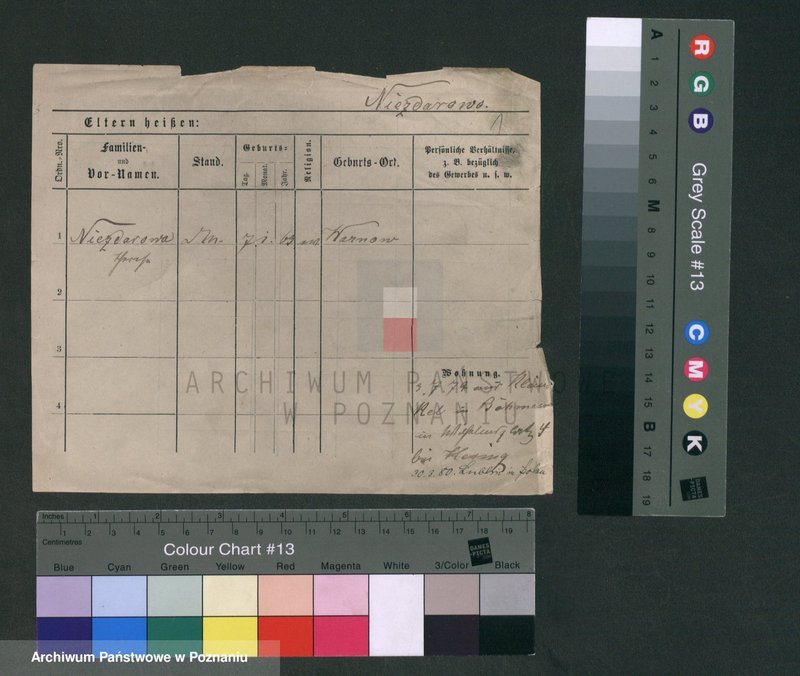 Niezdarowa.
Eltern heißen:
Ordn.-Nro.
Familien-
und
Vor-Namen.
Stand.
Geburts-
Tag.
Monat.
Jahr.
Religion.
Geburts-Ort.
Persönliche Verhältnisse,
z. B. bezüglich
des Gewerbes u. s. w.
1 Niezdarowa 7 1. 63
2
3
4
Wohnung.
in
bei
30.3.80.
ARCHIWUM PAŃSTWOWE
W POZNANIU
A 1 2 3 4 5 6 M 8 9 10 11 12 13 14 15 B 17 18 19
R G B
Grey Scale #13
C M Y K
DANES
PICTA
Inches 1 2 3 4 5 6 7 8
Centimetres 1 2 3 4 5 6 7 8 9 10 11 12 13 14 15 16 17 18 19
Colour Chart #13
DANES
PICTA
Blue Cyan Green Yellow Red Magenta White 3/Color Black
Archiwum Państwowe w Poznaniu